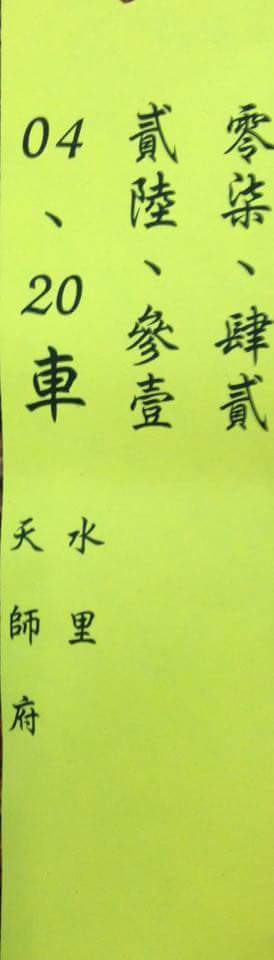 零柒、肆貳
貳陸、參壹
04、20車
水里
天師府